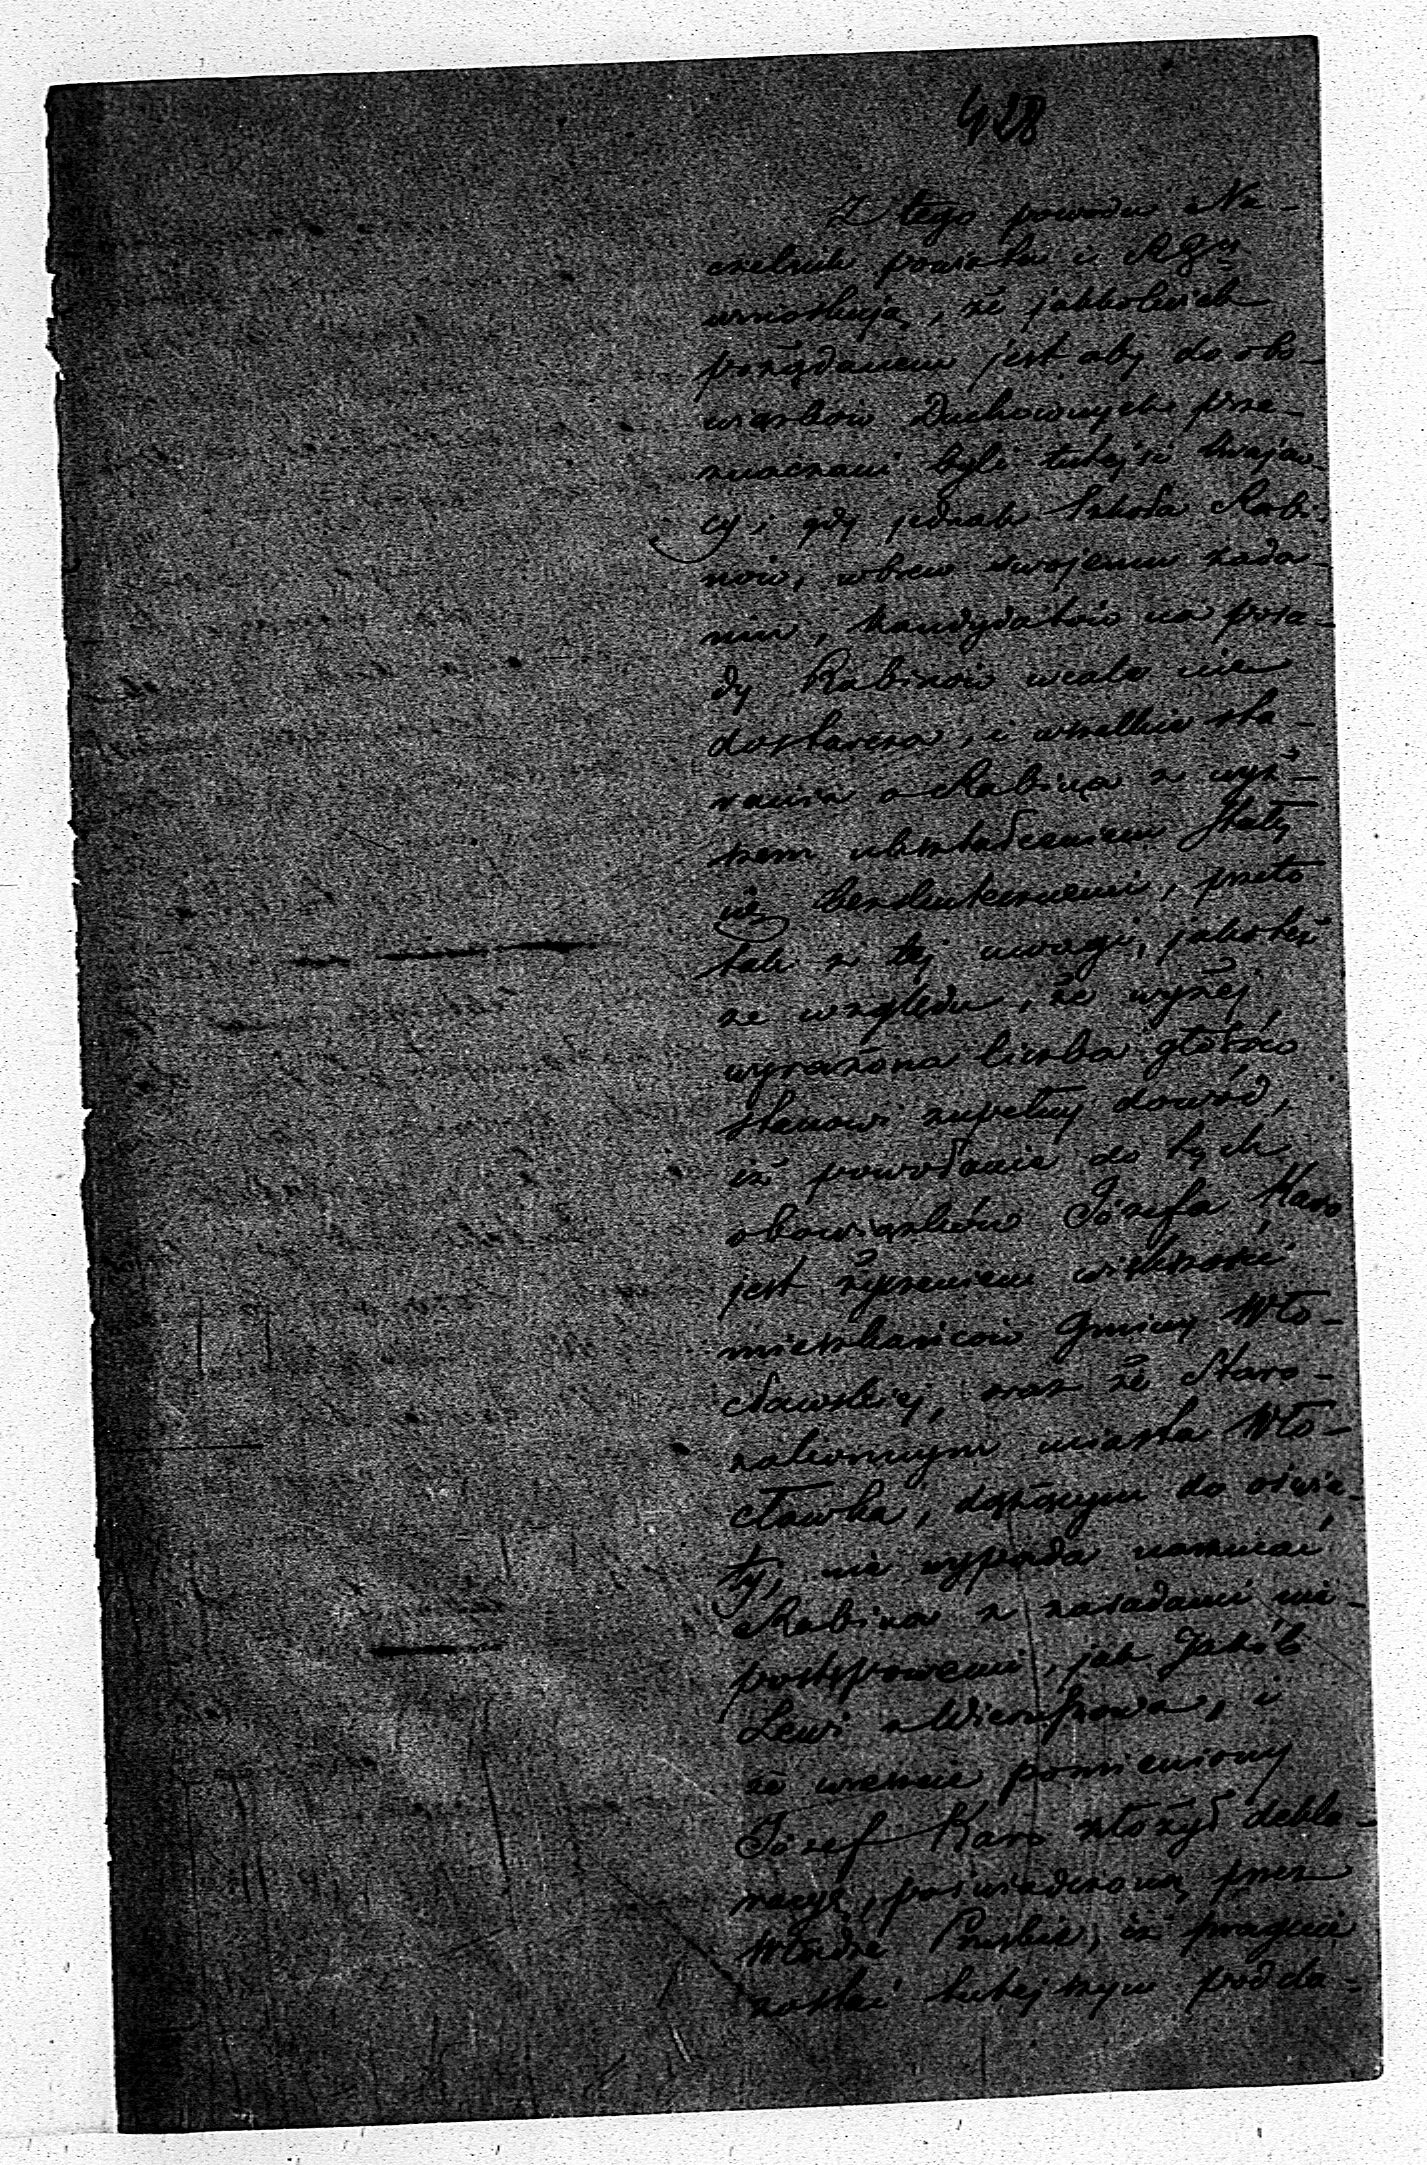 428
Z tego powodu Na-
czelnik powiatu i Rząd
wnioskują, że jakkolwiek
pożądanem jest aby do obo-
wiązków Duchownych prze-
znaczani byli tutejsi krajow-
cy; gdy jednak Szkoła Rabi-
nów, wbrew swojemu zada-
niu, kandydatów na posa-
dy Rabinów wcale nie
dostarcza, i wszelkie sta-
rania o Rabina z wyż-
szem ukształceniem stały
się bezskutecznemi, przeto
tak z tej uwagi, jakoteż
ze względu, że wyżej
wyrażona liczba głosów
stanowi zupełny dowód,
iż powołanie do tych
obowiązków Józefa Karo
jest życzeniem większości
mieszkańców Gminy Wło-
cławskiej, oraz że Staro-
zakonnym miasta Wło-
cławka, dążącym do oświa-
ty, nie wypada narzucać
Rabina z zasadami nie-
postępowemi, jak Jakób
Lewi z Wieruszowa, i
że wreszcie pomieniony
Józef Karo złożył dekla-
racyę, poświadczoną przez
Władze Pruskie, iż pragnie
zostać tutejszym podda-